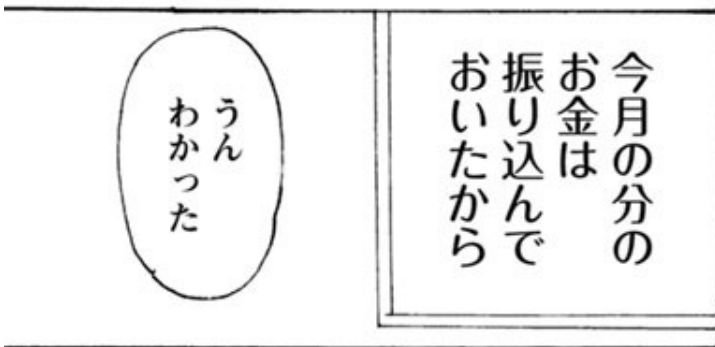 今月の分の
お金は
振り込んで
おいたから
うん
わかった